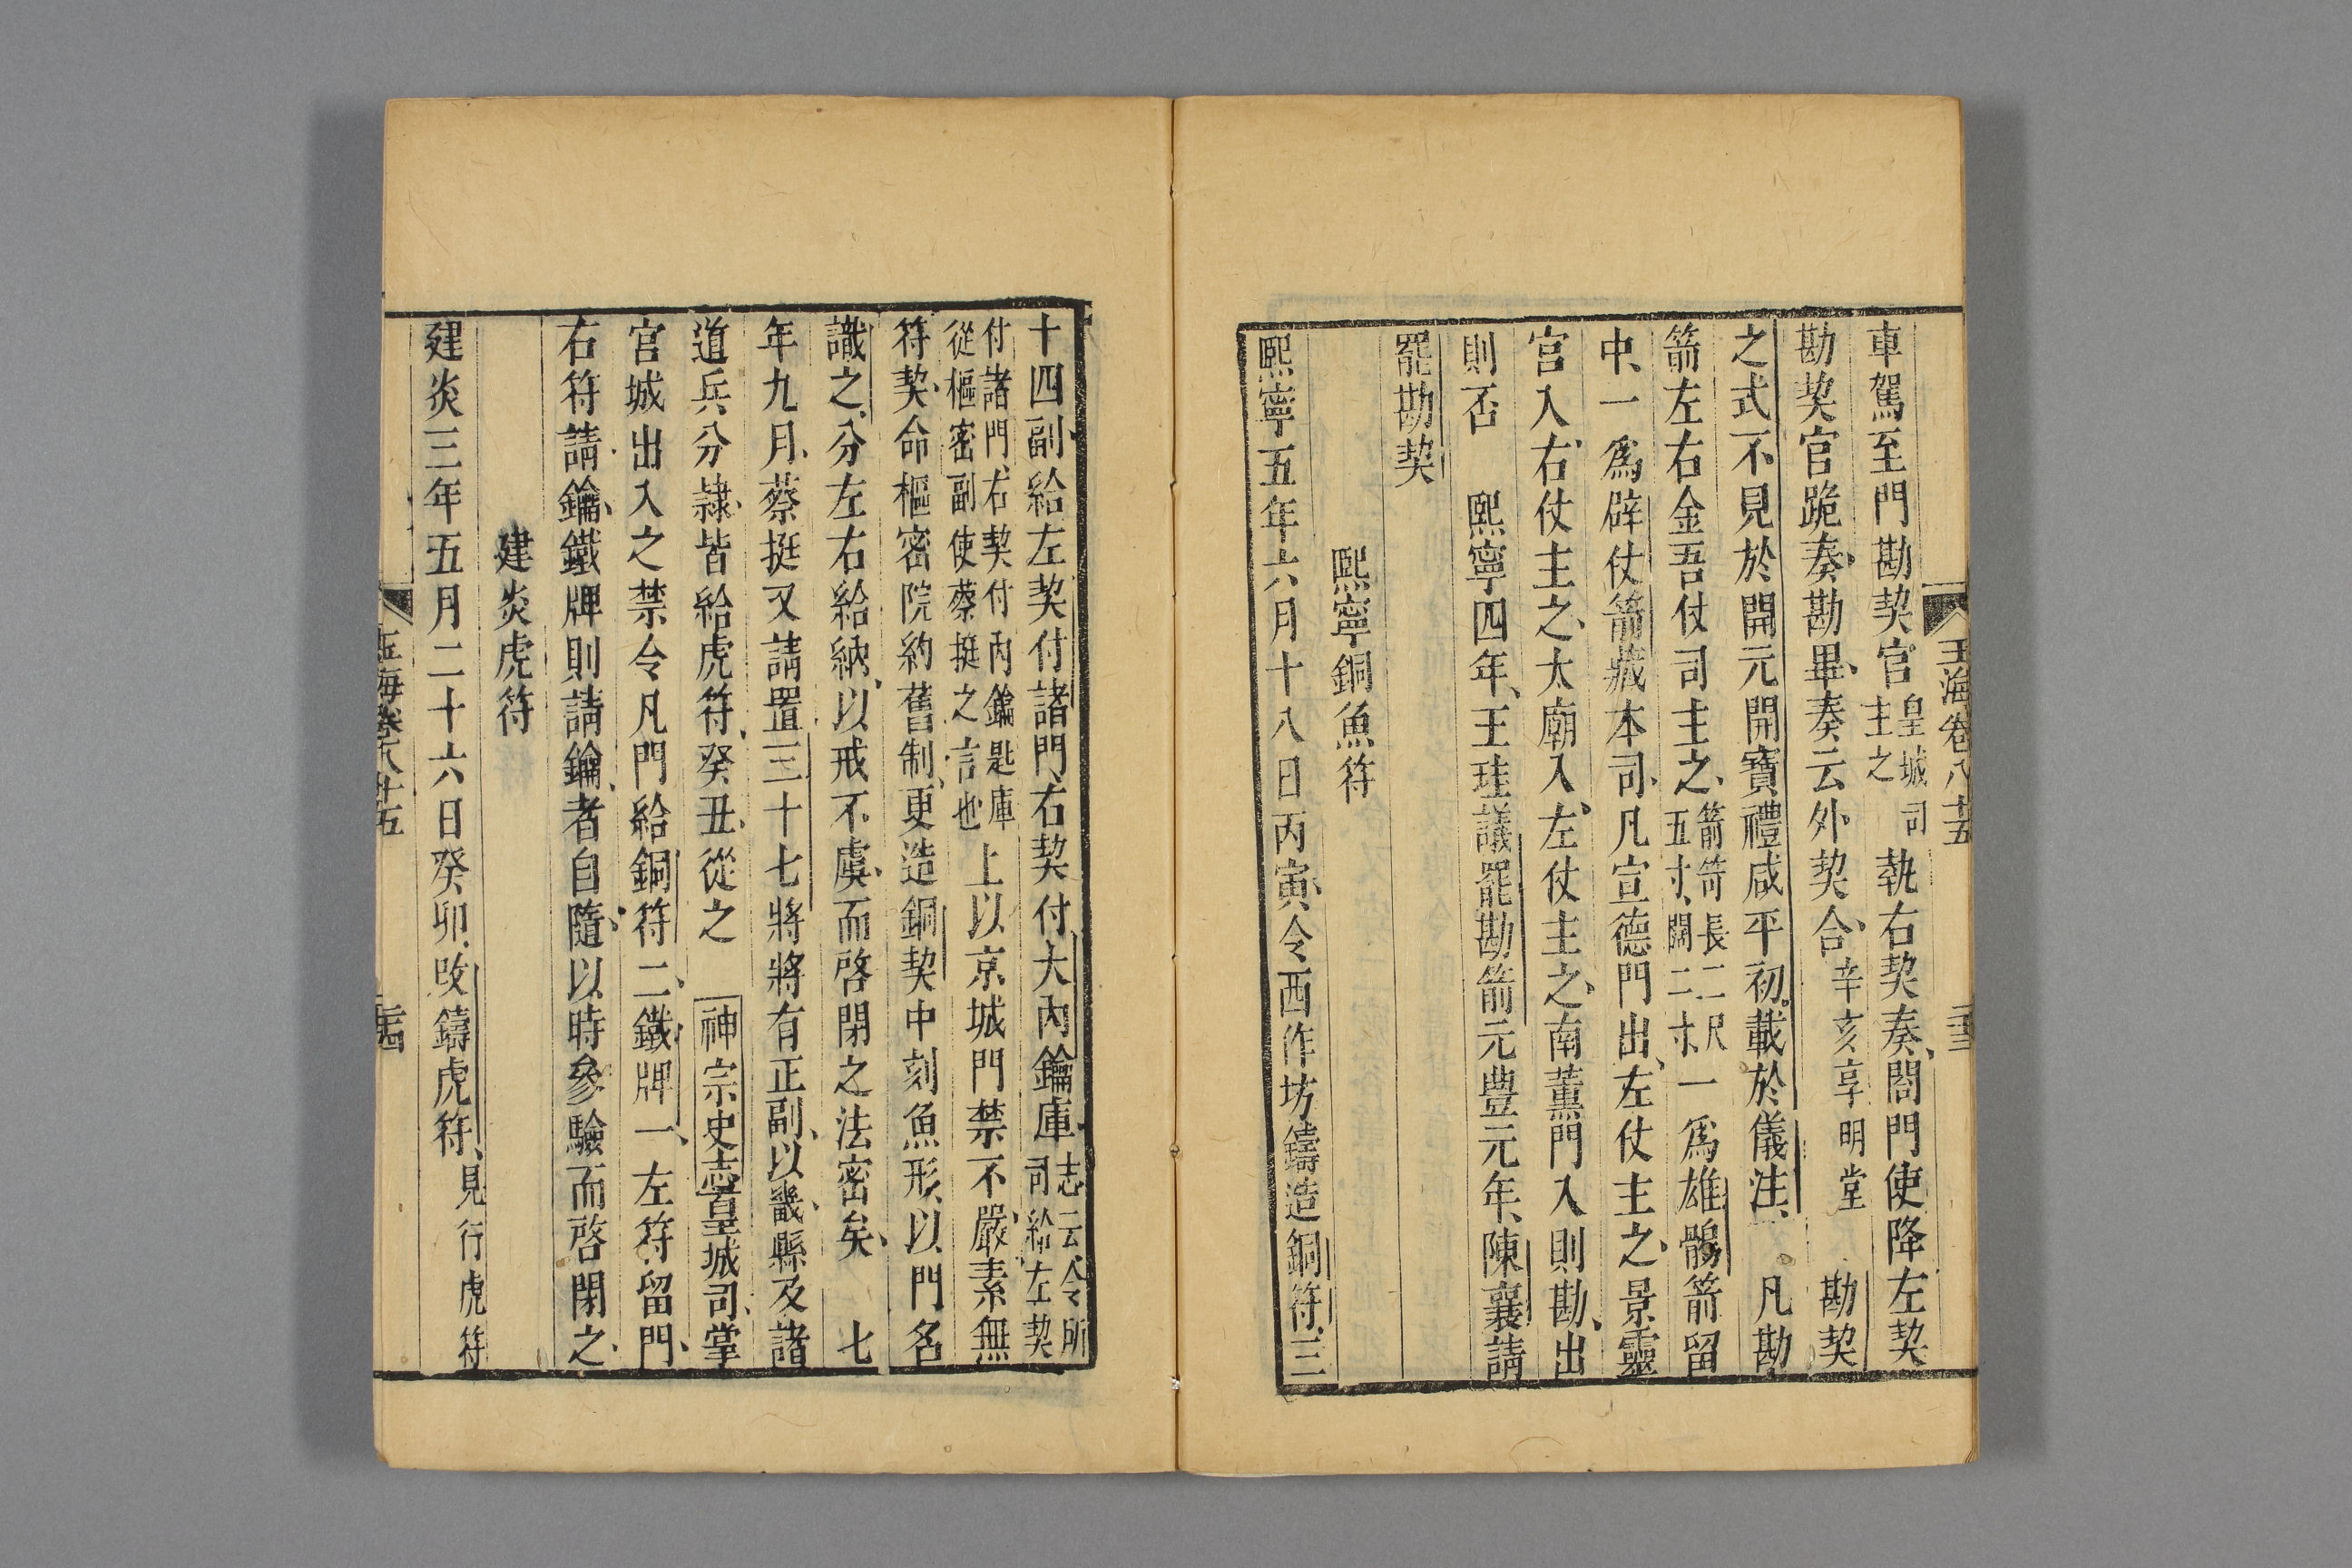 玉海卷八十五
二十三
車駕至門勘契官皇城司主之執右契奏閤門使降左契
勘契官跪奏勘畢奏云外契合辛亥享明堂 勘契
之式不見於開元開寶禮咸平初載於儀注 凡勘
箭左右金吾仗司主之箭笴長二尺五寸闊二寸一爲雄鶻箭留
中一爲辟仗箭藏本司凡宣德門出左仗主之景靈
宮入右仗主之太廟入左仗主之南薰門入則勘出
則否 熙寧四年王珪議罷勘箭元豐元年陳襄請
罷勘契
熙寧銅魚符
熙寧五年六月十八日丙寅令西作坊鑄造銅符三
十四副給左契付諸門右契付大內鑰庫志云令所司給左契
付諸門右契付內鑰匙庫從樞密副使蔡挺之言也上以京城門禁不嚴素無
符契命樞密院約舊制更造銅契中刻魚形以門名
識之分左右給納以戒不虞而啓閉之法密矣 七
年九月蔡挺又請置三十七將將有正副以畿縣及諸
道兵分隸皆給虎符癸丑從之 神宗史志皇城司掌
宮城出入之禁令凡門給銅符二鐵牌一左符留門
右符請鑰鐵牌則請鑰者自隨以時參驗而啓閉之
建炎虎符
建炎三年五月二十六日癸卯改鑄虎符見行虎符
玉海卷八十五
二十四